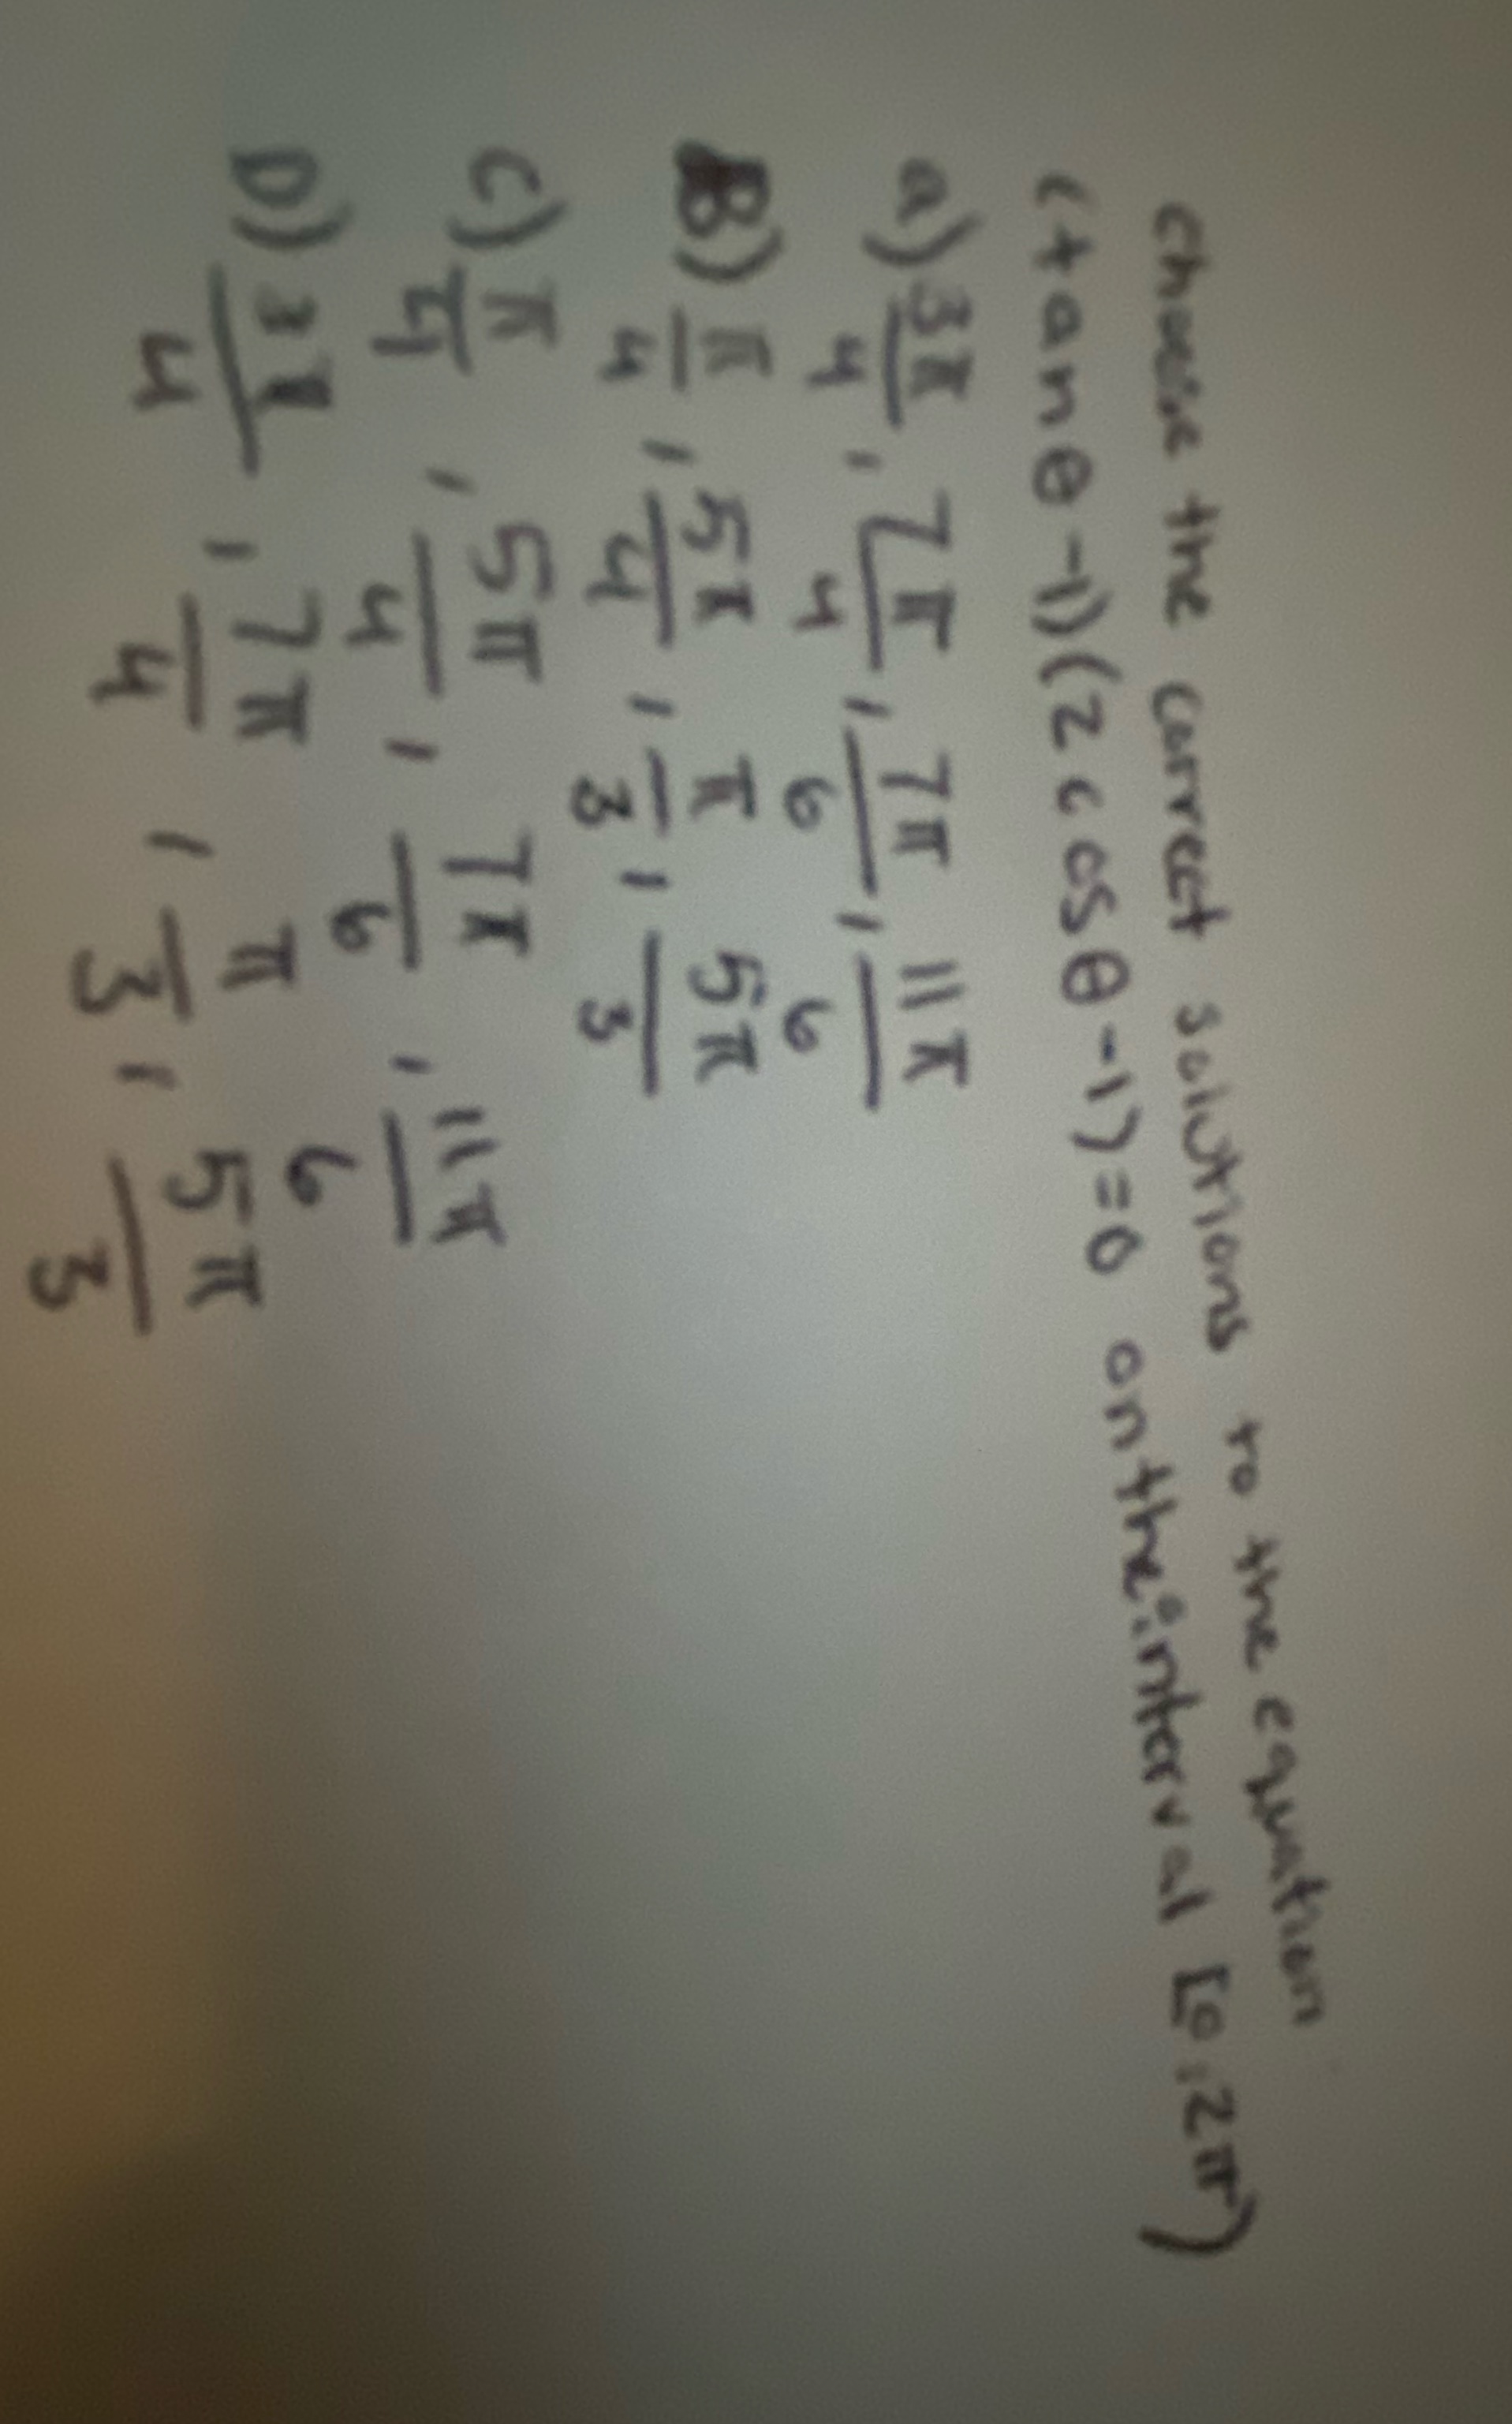 choose the correct solutions to the equation
(tanθ-1)(2cosθ-1)=0 on the interval [0,2π)
a) 3π/4, 7π/4, 7π/6, 11π/6
B) π/4, 5π/4, π/3, 5π/3
c) π/4, 5π/4, 7π/6, 11π/6
D) 3π/4, 7π/4, π/3, 5π/3